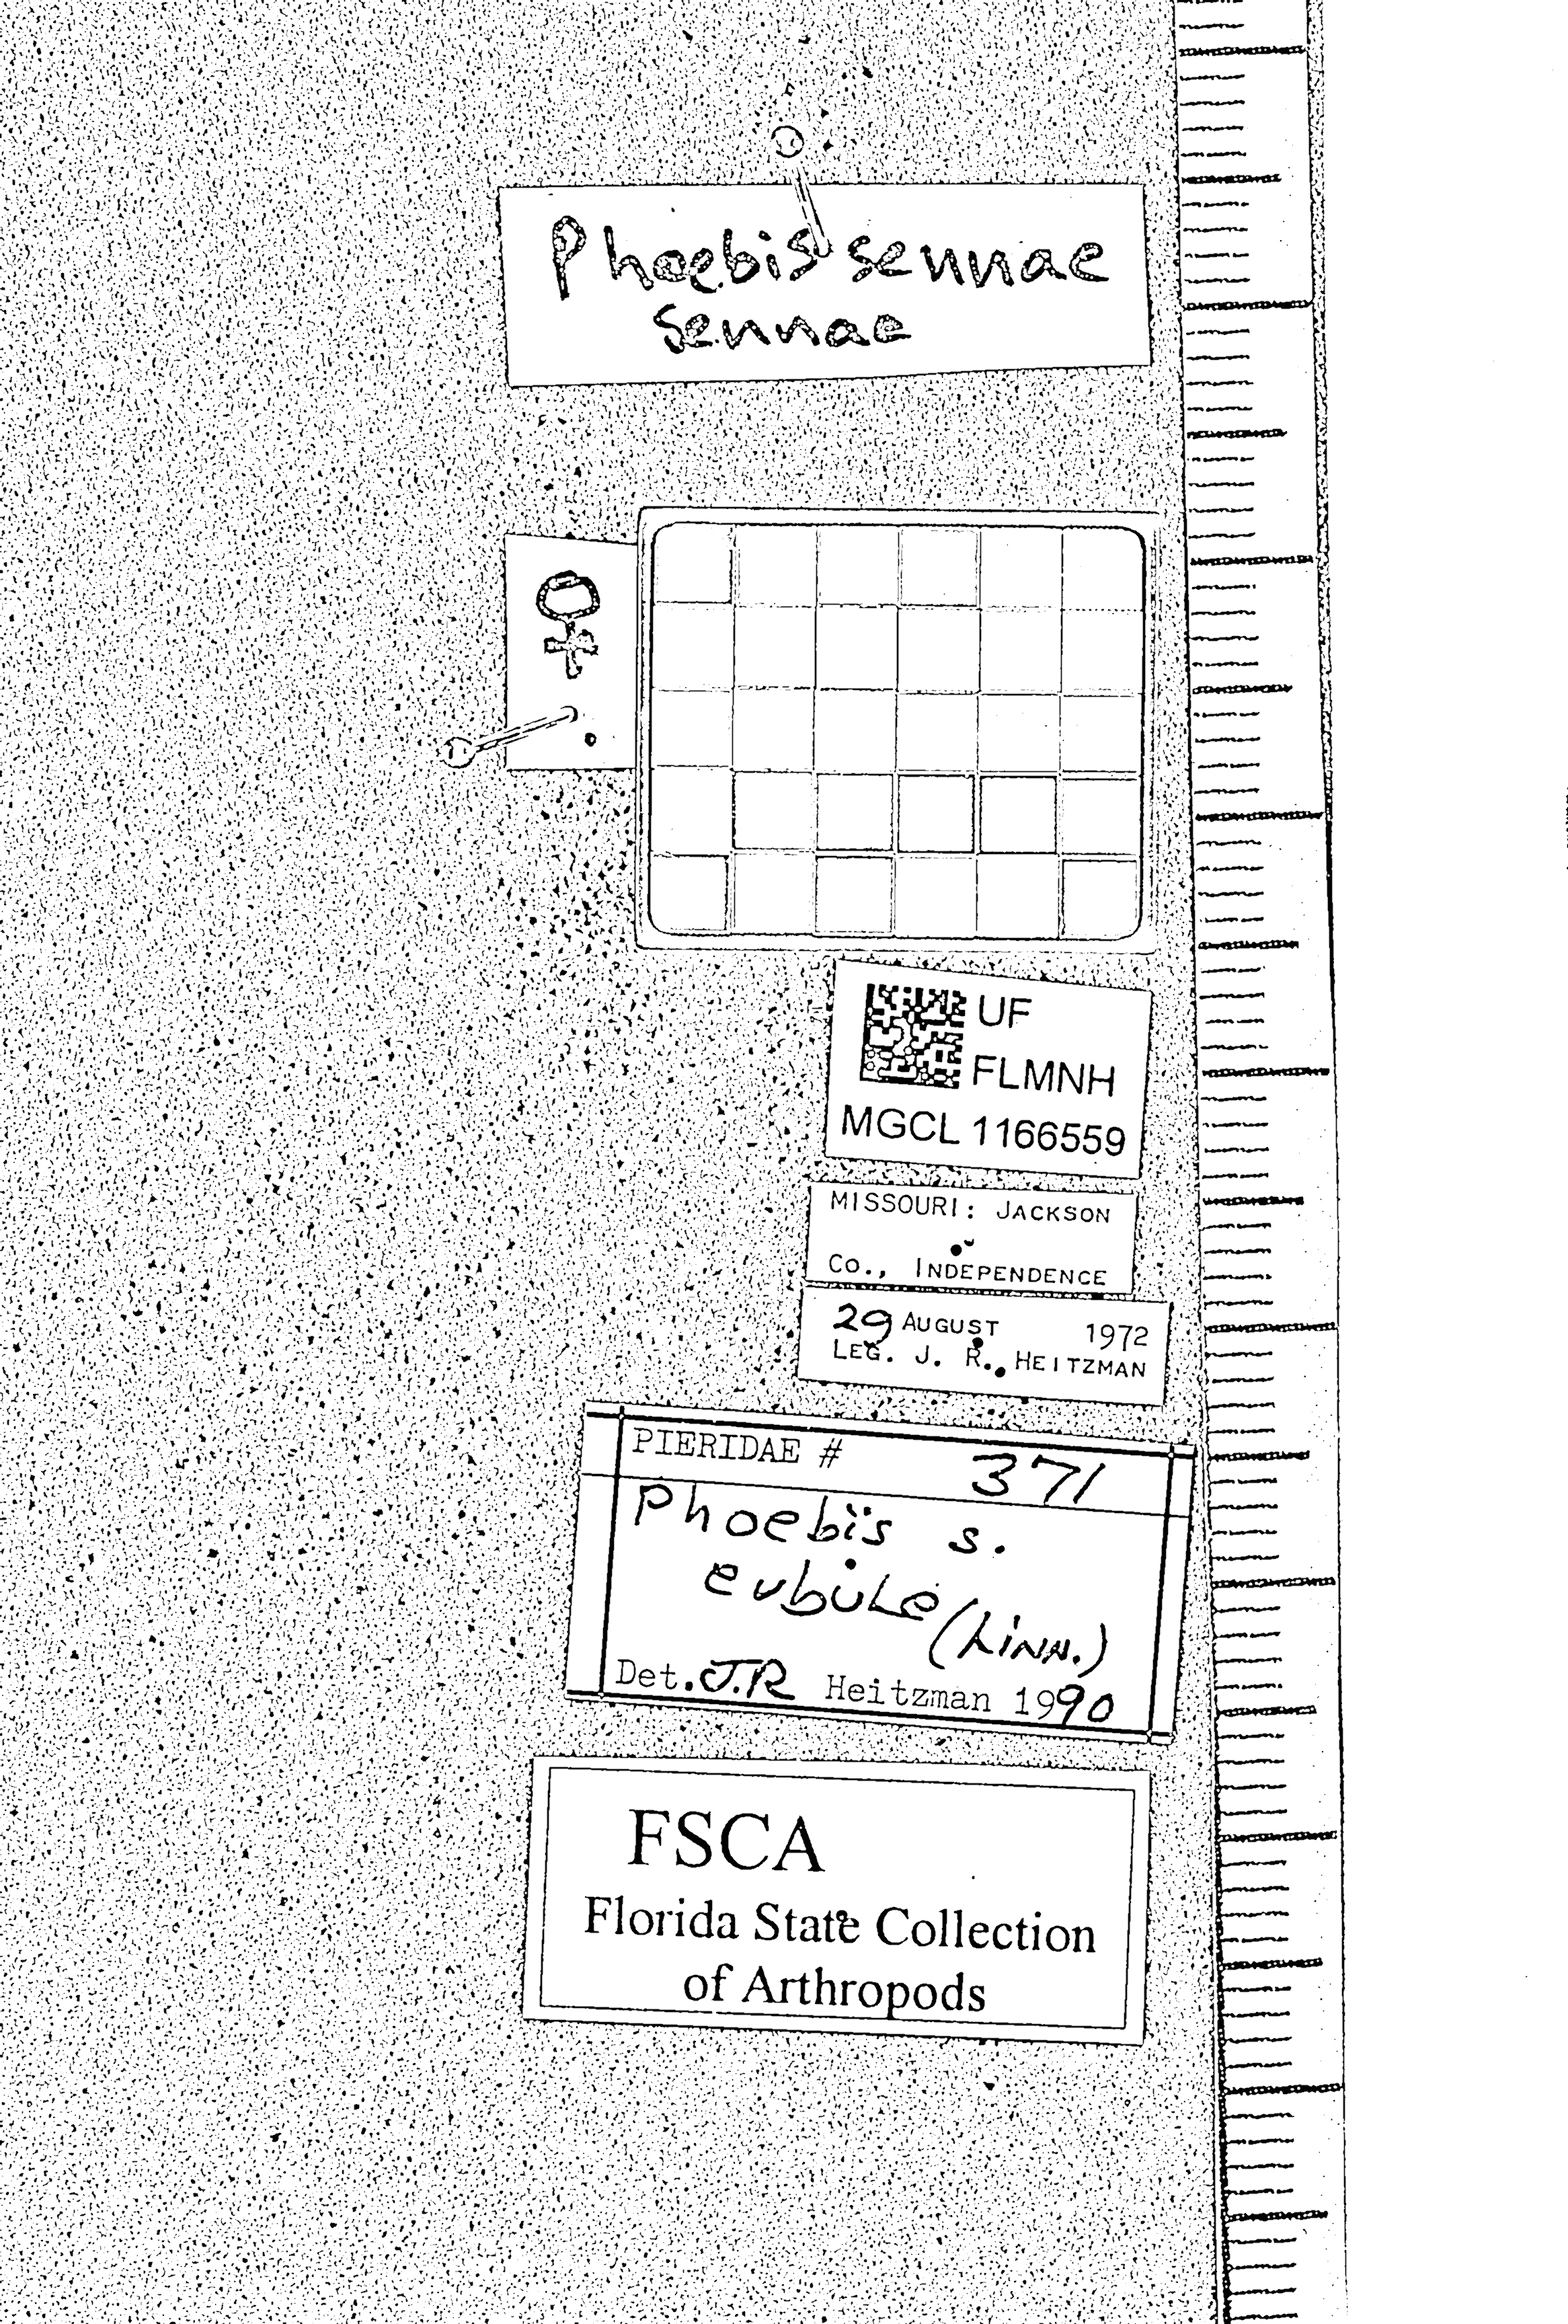 Phoebis sennae
sennae
♀
UF
FLMNH
MGCL 1166559
MISSOURI: JACKSON
CO., INDEPENDENCE
29 AUGUST 1972
LEG. J. R. HEITZMAN
PIERIDAE # 371
Phoebis s.
eubule (Linn.)
Det. J.R Heitzman 1990
FSCA
Florida State Collection
of Arthropods